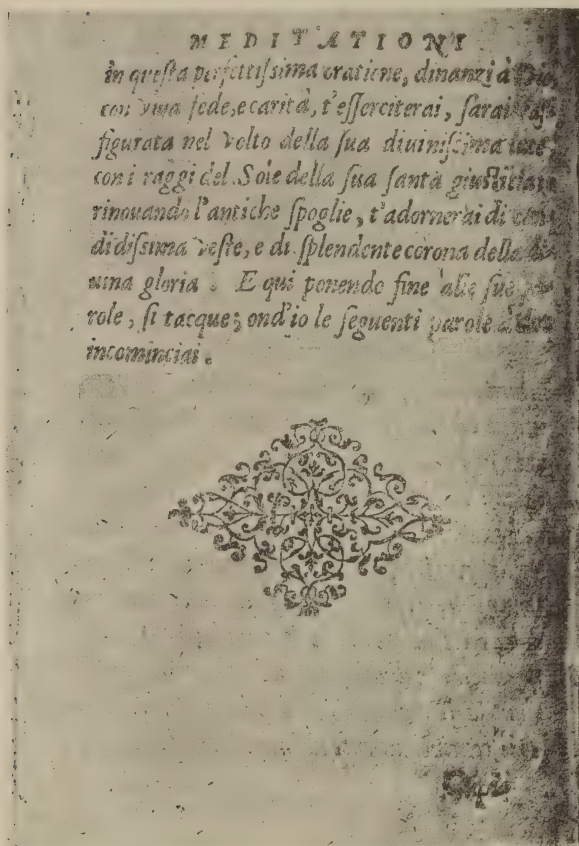 MEDITATIONI
in questa perfettissima oratione, dinanzi à Dio,
con viua fede, e carità, t'esserciterai, sarai
figurata nel volto della sua diuinissima luce
con i raggi del Sole della sua santa giustitia,
rinouando l'antiche spoglie, t'adornerai di
didissima veste, e di splendente corona della
uina gloria. E qui ponendo fine alle sue
role, si tacque; ond'io le seguenti parole
incominciai.